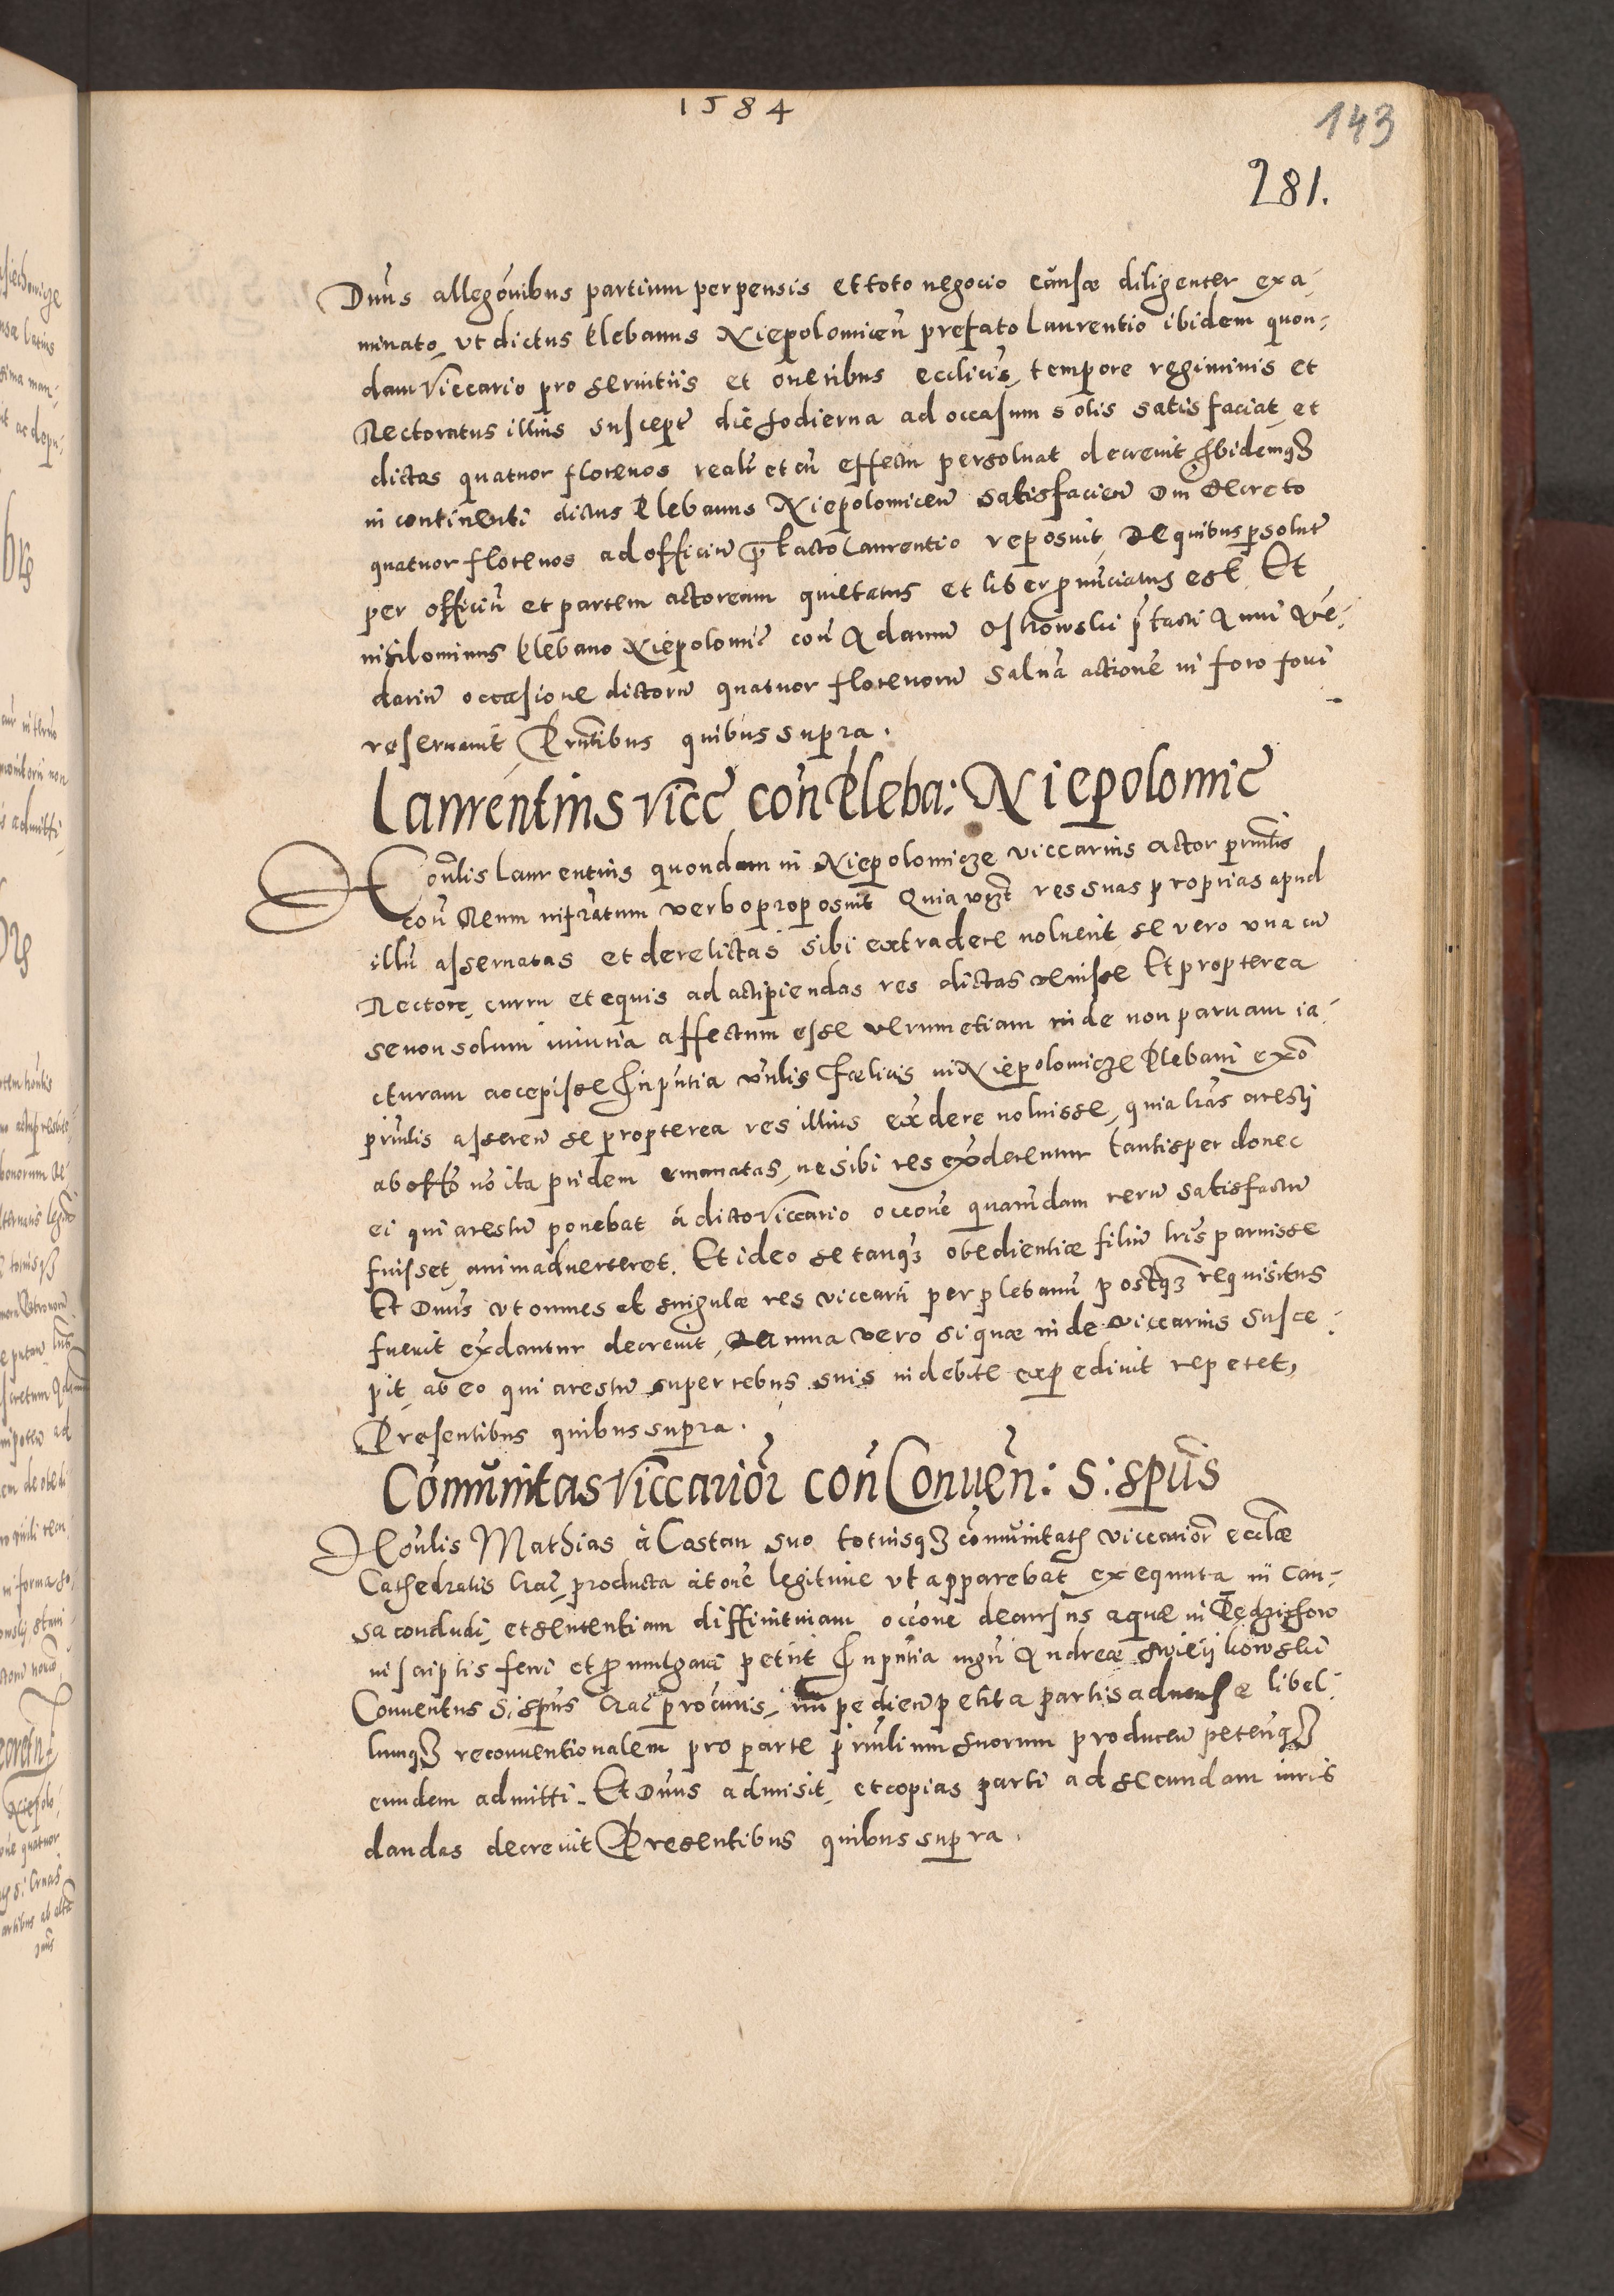 1584
143
281.
Dnus allegonibus partium perpensis et toto negocio causæ diligenter exa-
minato, vt dictus plebanus Niepolomicen prefato Laurentio ibidem quon-
dam Viccario pro seruitiis et oneribus eccliis, tempore regiminis et
Rectoratus illius suscept die hodierna ad occasum solis satisfaciat, et
dictas quatuor florenos realr et cu effectu persoluat decreuit Ibidemq3
in continenti dictus plebanus Niepolomicen satisfacien Dni decreto
quatuor florenos ad officiu ptacto Laurentio reposuit, De quibus psolut
per officiu et partem actoream quietatus et liber pnuciatus est Et
nihilominus plebano Niepolomic con Adamum Oskowski ptacti
darium occasione dictoru quatuor florenoru saluã actione in foro fori
reseruauit Pntibus quibus supra.
Laurentius Vicc con Pleba: Niepolomic
Honlis Laurentius quondam in Niepolomicze viccarius actor prncilis
con Reum infratum verbo proposuit Quia vzt res suas proprias apud
illu asseruatas et derelictas sibi extradere noluerit, se vero vna cu
Rectore, curru et equis ad accipiendas res dictas venisse Et propterea
se non solum iniuria affectum esse verum etiam inde non paruam ia-
cturam accepisse In pntia vnlis Fœlicis in Niepolomicze Plebani ex
prnlis asseren se propterea res illius exdere noluisse, quia lras aresti
ab offo no ita pridem emanatas, ne sibi res exderentur tantisper donec
ei qui arestu ponebat à dicto Viccario occone quarundam reru satisfactu
fuisset, animaduerteret. Et ideo se tanq3 obedientiæ filiu lris paruisse
Et Dnus vt omnes et singulæ res viccarii per plebanu postq3 requisitus
fuerit exdantur decreuit, Damna vero si quæ inde viccarius susce-
pit, ab eo qui arestu super rebus suis indebite expediuit repetet,
Presentibus quibus supra.
Comunitas Viccarior con Conuen: S: Spus
Honlis Mathias à Costan suo totiusq3 comunitatis viccarior ecclæ
Cathedralis Crac, producta citone legitime vt apparebat exequuta in cau-
sa concludi, et sententiam diffinitiuam occone decursus aquæ in Pedzighow
in scriptis ferri et promulgari petiit In pntia mgri Andreæ
Conuentus S. Spus Crac procuris, impedien petita partis aduersæ libel-
lumq3 reconuentionalem pro parte prnlium suorum producen petenq3
eundem admitti. Et Dnus admisit, et copias parti ad secundam iuris
dandas decreuit Presentibus quibus supra.